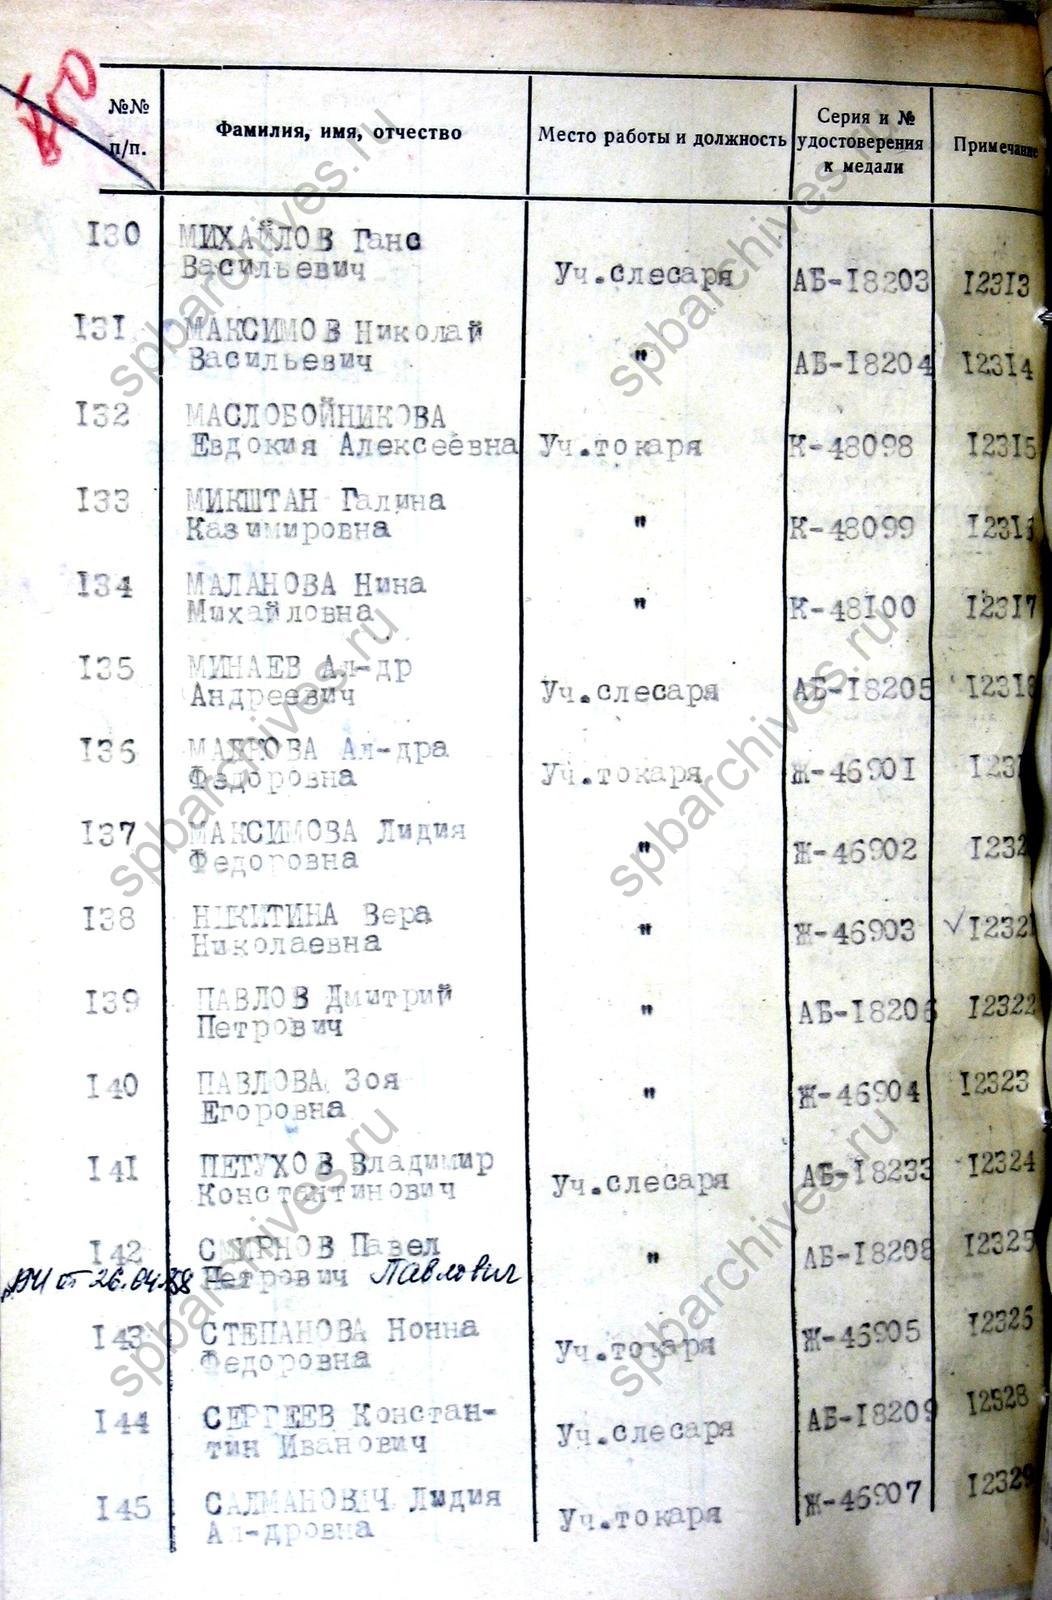 №№ п/п.
Фамилия, имя, отчество
Место работы и должность
Серия и № удостоверения к медали
Примечание
130 МИХАЙЛОВ Ганс
Васильевич Уч.слесаря АБ-18203 12313
131 МАКСИМОВ Николай
Васильевич " АБ-18204 12314
132 МАСЛОБОЙНИКОВА
Евдокия Алексеевна Уч.токаря К-48098 12315
133 МИКШТАН Галина
Казимировна " К-48099 12316
134 МАЛАНОВА Нина
Михайловна " К-48100 12317
135 МИНАЕВ Ал-др
Андреевич Уч.слесаря АБ-18205 12318
136 Ал-дра
Федоровна Уч.токаря Ж-46901 1231
137 МАКСИМОВА Лидия
Федоровна " Ж-46902 1232
138 НИКИТИНА Вера
Николаевна " Ж-46903 √12321
139 ПАВЛОВ Дмитрий
Петрович " АБ-18206 12322
140 ПАВЛОВА Зоя
Егоровна " Ж-46904 12323
141 ПЕТУХОВ Владимир
Константинович Уч.слесаря АБ-18233 12324
142 СМИРНОВ Павел
от 26.04.88 Петрович Павлович " АБ-18208 12325
143 СТЕПАНОВА Нонна
Федоровна Уч.токаря Ж-46905 12326
144 СЕРГЕЕВ Констан-
тин Иванович Уч.слесаря АБ-18209 12328
145 САЛМАНОВИЧ Лидия
Ал-дровна Уч.токаря Ж-46907 12329
spbarchives.ru
spbarchives.ru
spbarchives.ru
spbarchives.ru
spbarchives.ru
spbarchives.ru